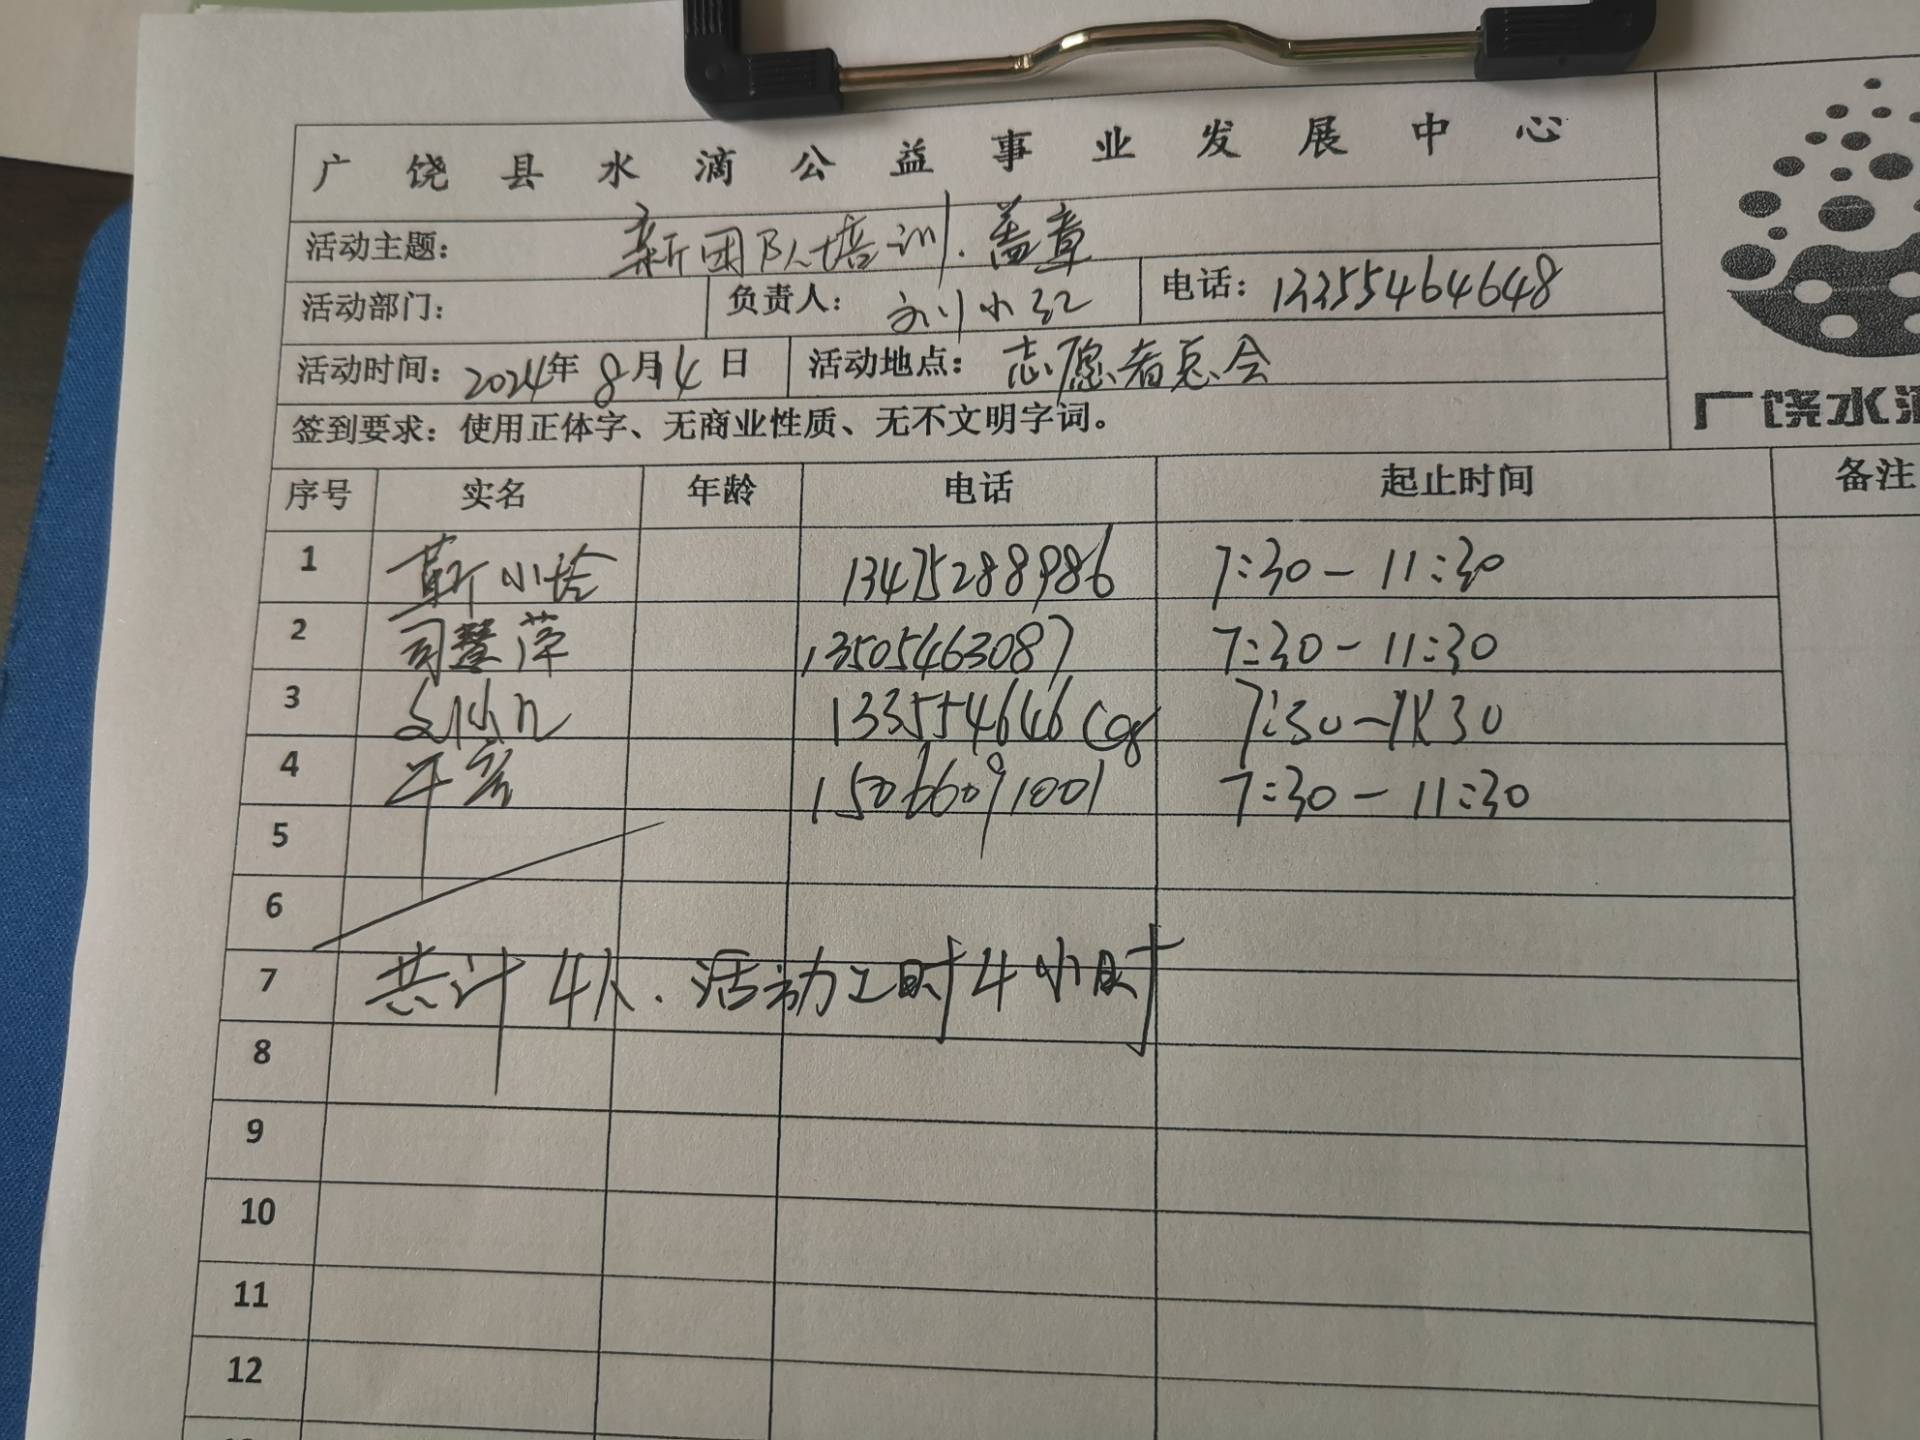 广饶县水滴公益事业发展中心
活动主题： 新团队培训.盖章
活动部门： 负责人： 刘小红 电话：13355464648
活动时间：2024年8月4日 活动地点： 志愿者总会
签到要求：使用正体字、无商业性质、无不文明字词。
广饶水滴
序号 实名 年龄 电话 起止时间 备注
1 靳小玲 13475288986 7:30-11:30
2 司慧萍 13505463087 7:30-11:30
3 刘小红 13355464648 7:30-11:30
4 15066091001 7:30-11:30
5
6
7 共计4人.活动工时4小时
8
9
10
11
12